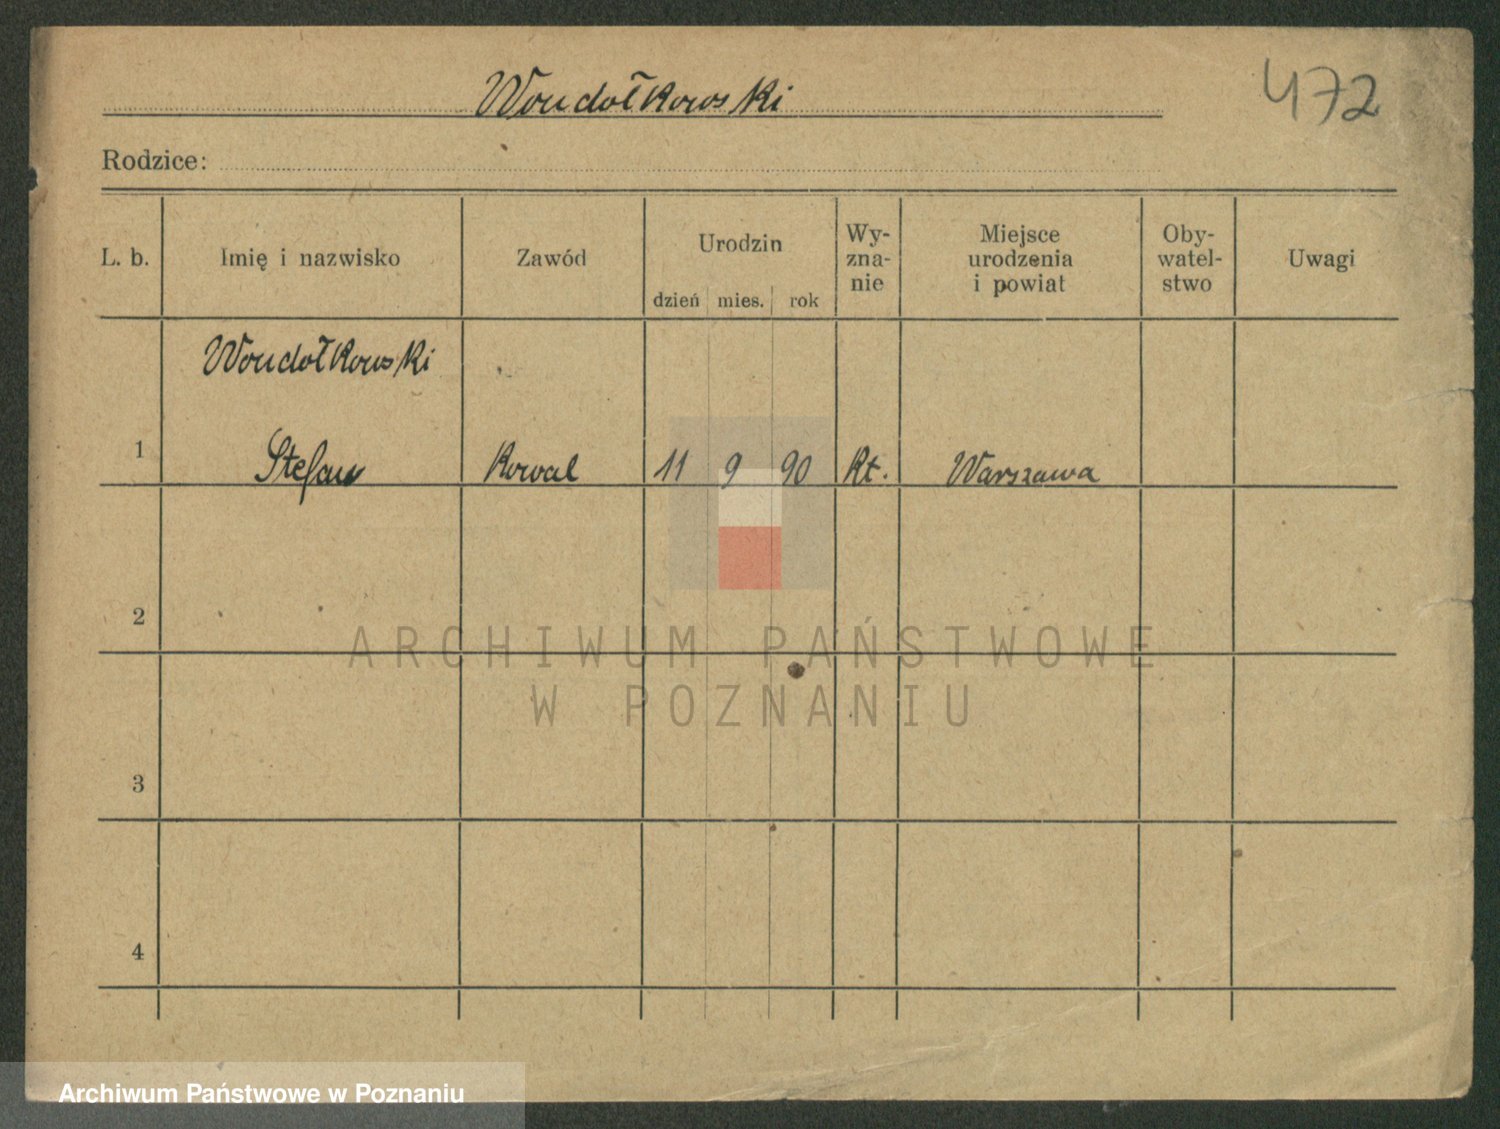 Wondołkowski
472
Rodzice:
L. b. Imię i nazwisko Zawód Urodzin dzień mies. rok Wy-zna-nie Miejsce urodzenia i powiat Oby-watel-stwo Uwagi
Wondołkowski
1 Stefan Kowal 11 9 90 Rt. Warszawa
2
ARCHIWUM PAŃSTWOWE
W POZNANIU
3
4
Archiwum Państwowe w Poznaniu